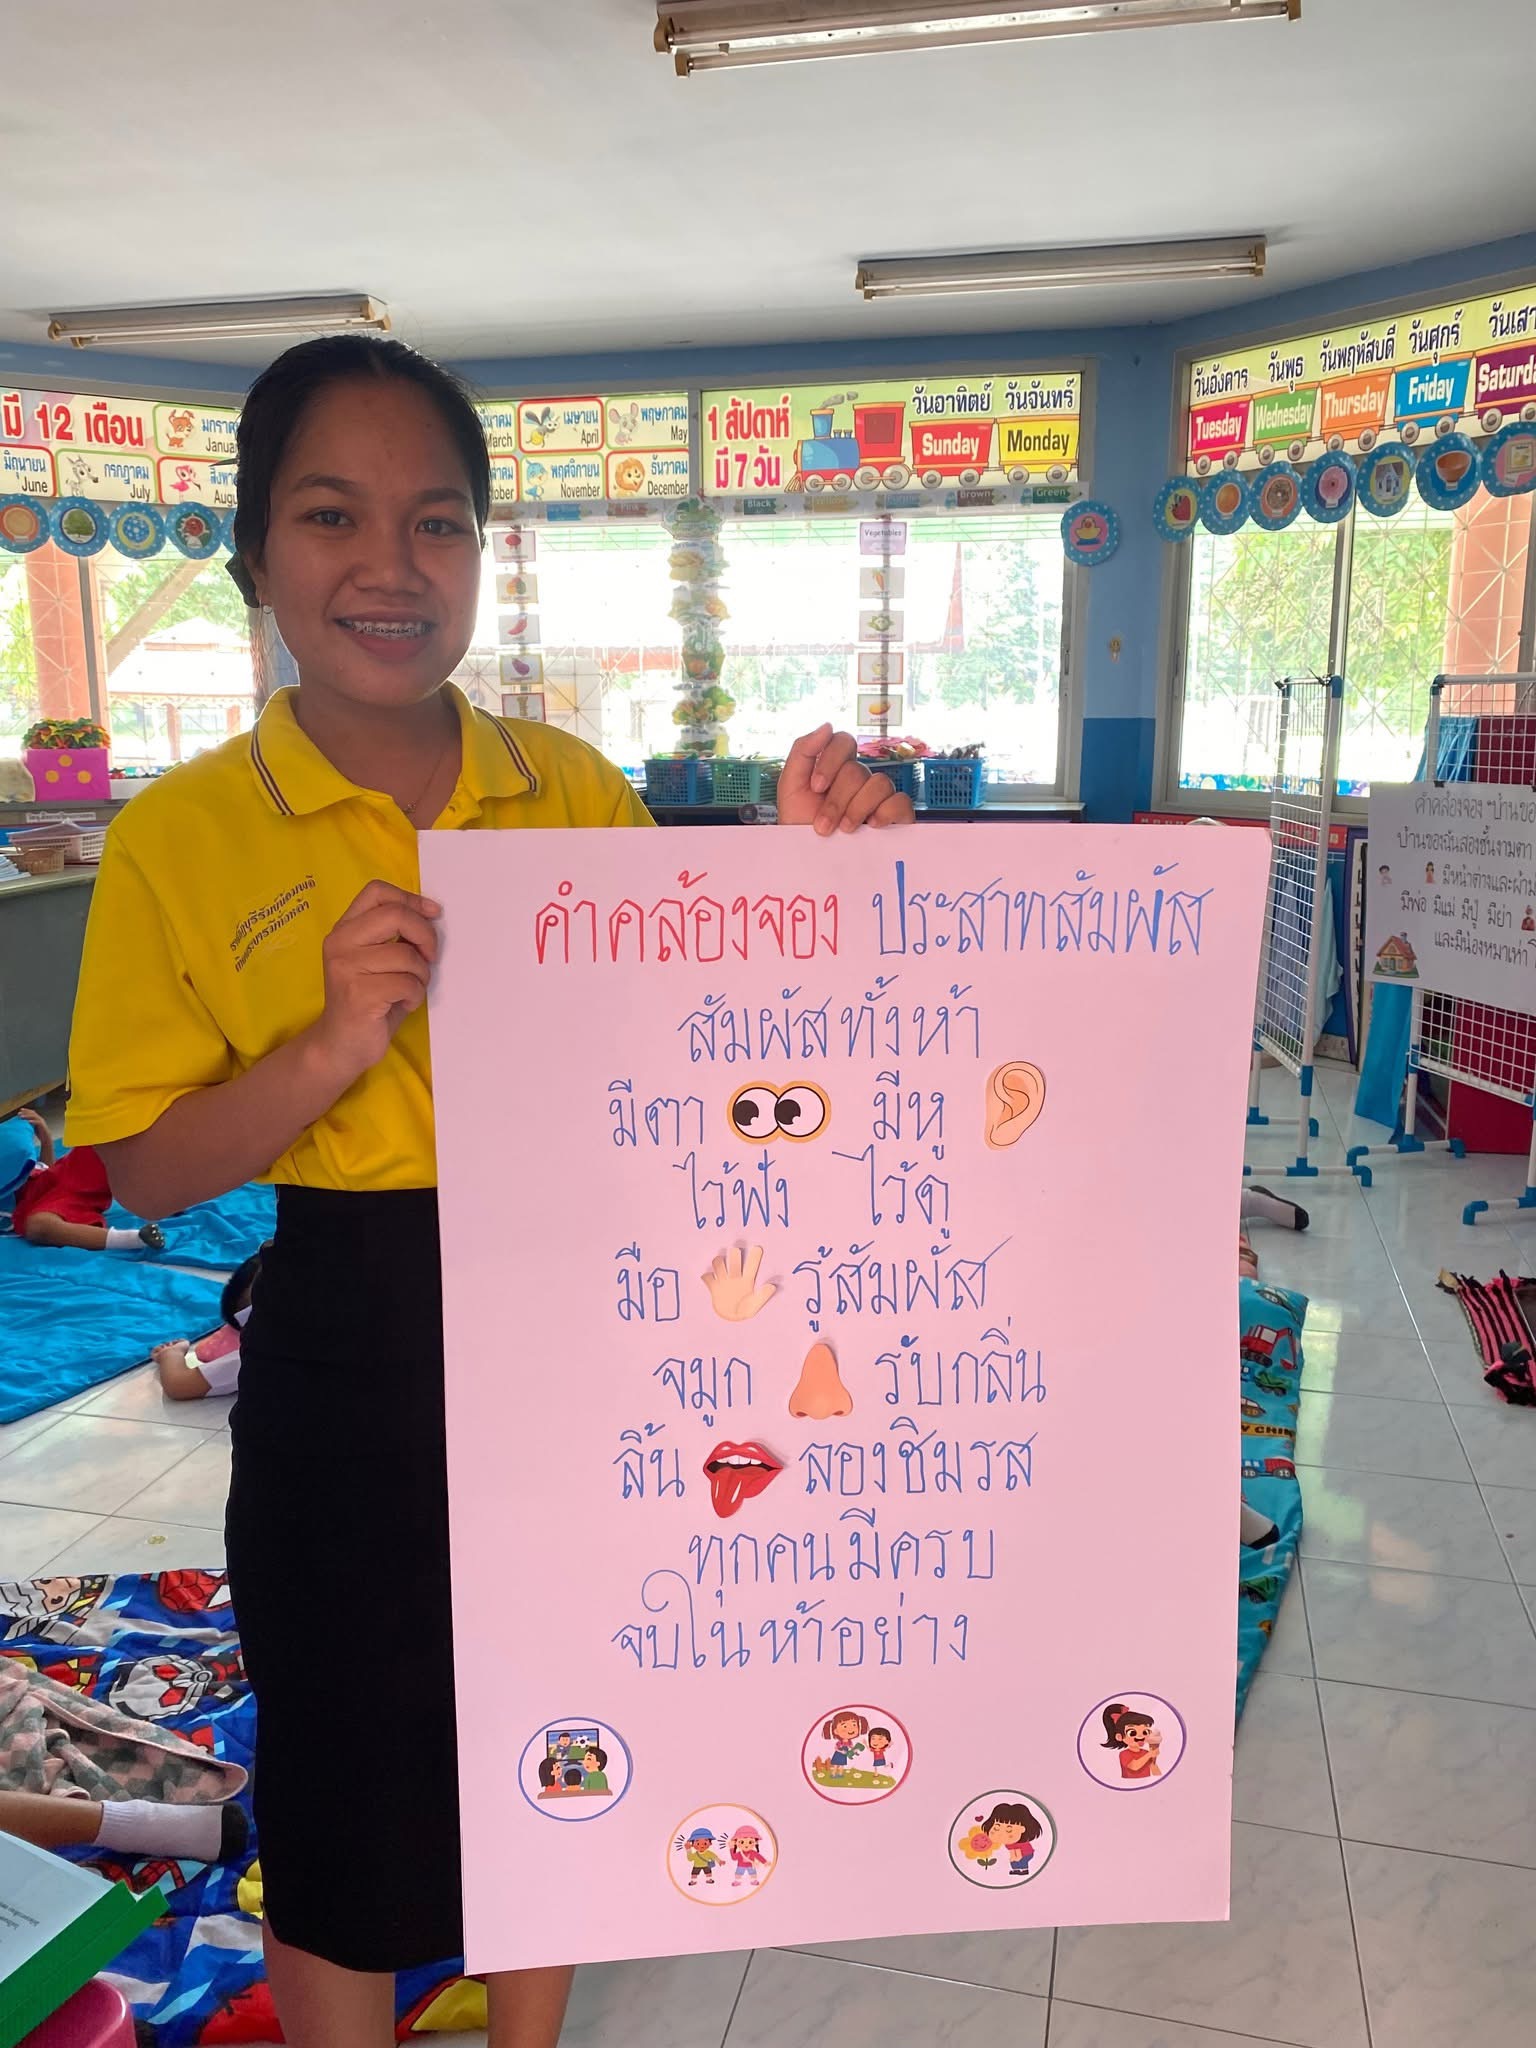 มี 12 เดือน
มกราค
Januar
มิถุนายน
June
กรกฎาคม
July
สิงหา
Augu
March
เมษายน
April
พฤษภาคม
May
พฤศจิกายน
November
ธันวาคม
December
1 สัปดาห์
มี 7 วัน
วันอาทิตย์ วันจันทร์
Sunday Monday
วันอังคาร วันพุธ วันพฤหัสบดี วันศุกร์ วันเสา
Tuesday Wednesday Thursday Friday Saturda
Black Brown Green
Vegetables
คำคล้องจอง ประสาทสัมผัส
สัมผัสทั้งห้า
มีตา มีหู
ไว้ฟัง ไว้ดู
มือ รู้สัมผัส
จมูก รับกลิ่น
ลิ้น ลองชิมรส
ทุกคนมีครบ
จบในห้าอย่าง
คำคล้องจอง "บ้านขอ
บ้านของฉันสองชั้นงามตา
มีหน้าต่างและผ้าม่
มีพ่อ มีแม่ มีปู่ มีย่า
และมีน้องหมาเห่า